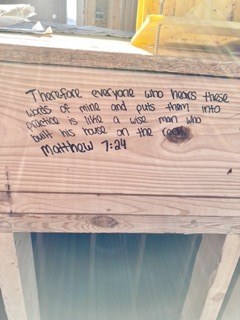 Therefore everyone who hears these
words of mine and puts them into
practice is like a wise man who
built his house on the rock.
Matthew 7:24